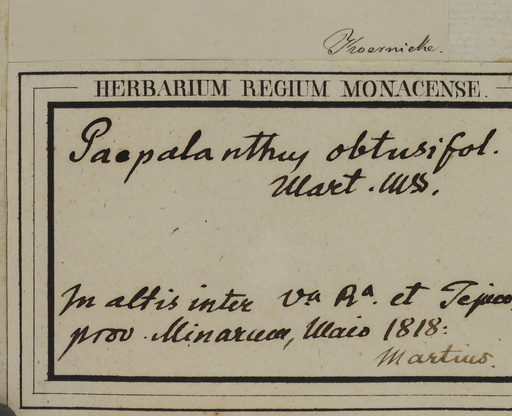 Koernicke.
HERBARIUM REGIUM MONACENSE.
Paepalanthus obtusifol.
Mart. Mss.
In altis inter Va Ra. et Tejuco,
prov. Minarum, Maio 1818.
Martius.